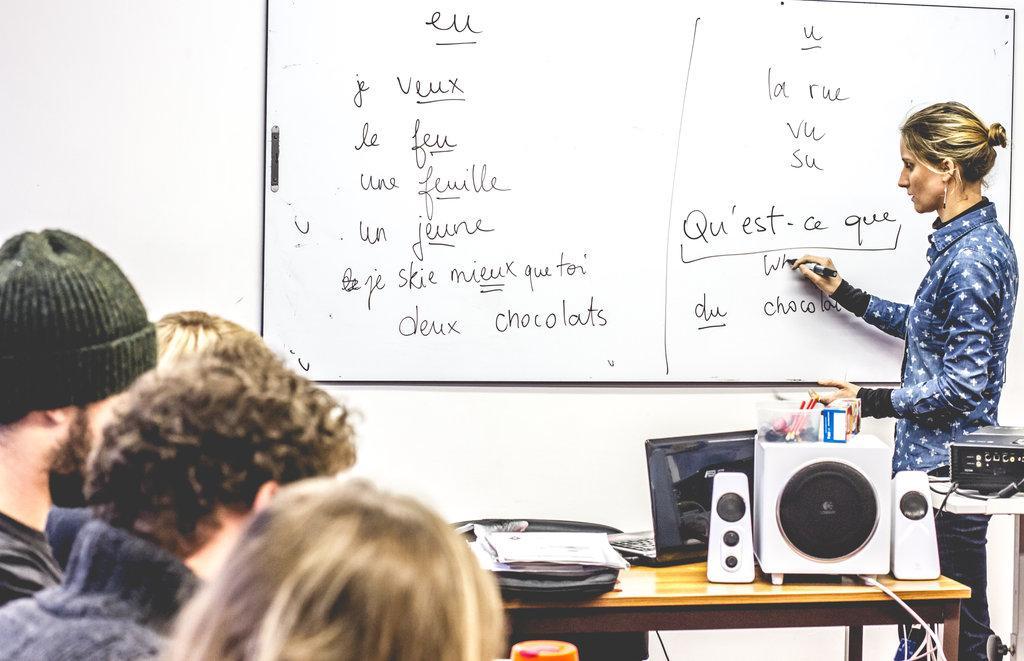 eu
je veux
le feu
une feuille
un jeune
je skie mieux que toi
deux chocolats
u
la rue
vu
su
Qu'est-ce que
Wh
du chocola